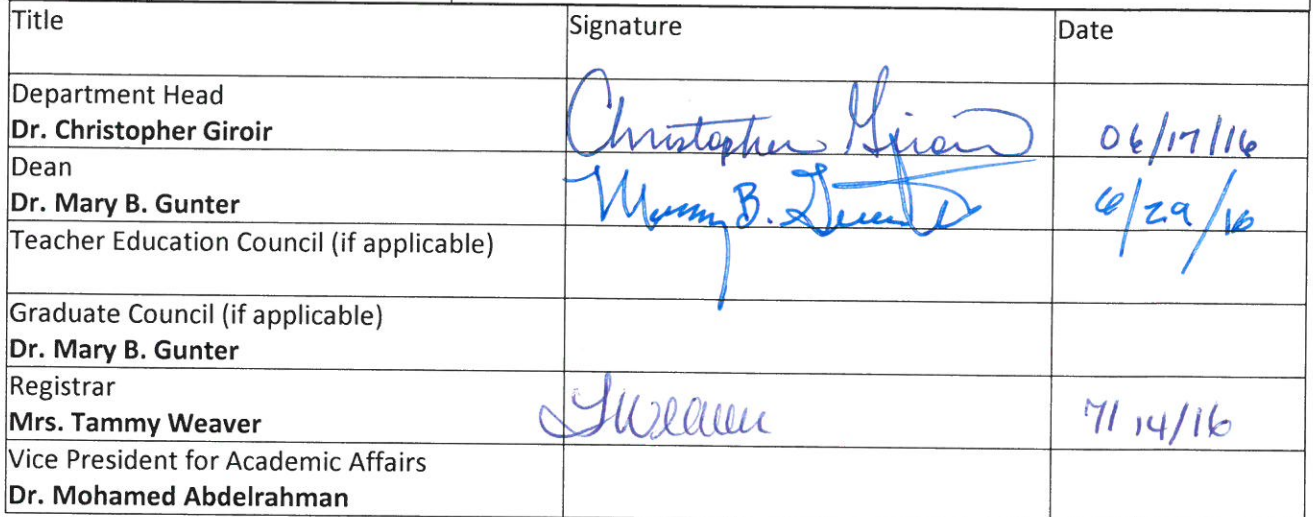 Title Signature Date
Department Head
Dr. Christopher Giroir Christopher Giroir 06/17/16
Dean
Dr. Mary B. Gunter Mary B. Gunter 6/29/16
Teacher Education Council (if applicable)
Graduate Council (if applicable)
Dr. Mary B. Gunter
Registrar
Mrs. Tammy Weaver TWeaver 7/14/16
Vice President for Academic Affairs
Dr. Mohamed Abdelrahman